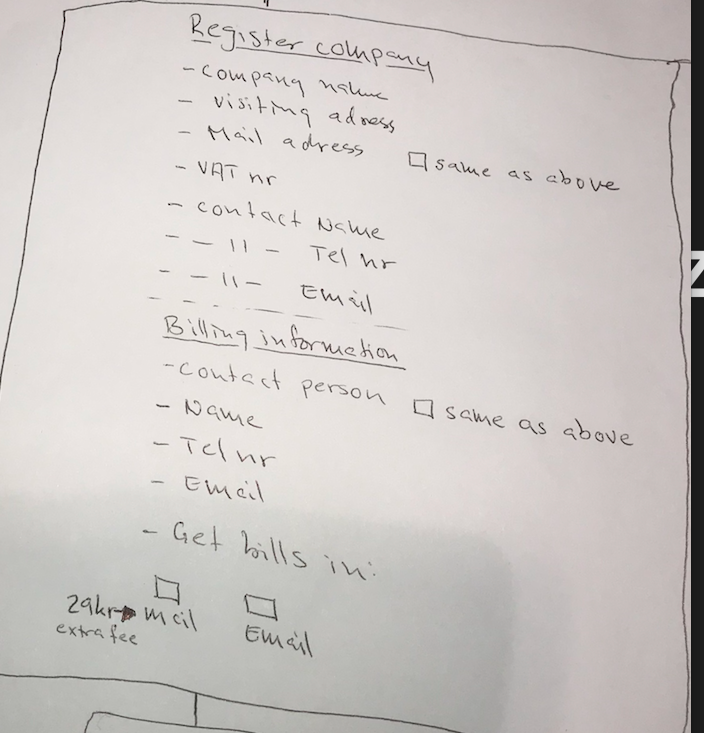 Register company
- company name
- visiting adress
- Mail adress □ same as above
- VAT nr
- contact Name
- - 11 - Tel nr
- - 11 - Email
Billing information
- contact person □ same as above
- Name
- Tel nr
- Email
- Get bills in:
□ □
29kr → mail Email
extra fee